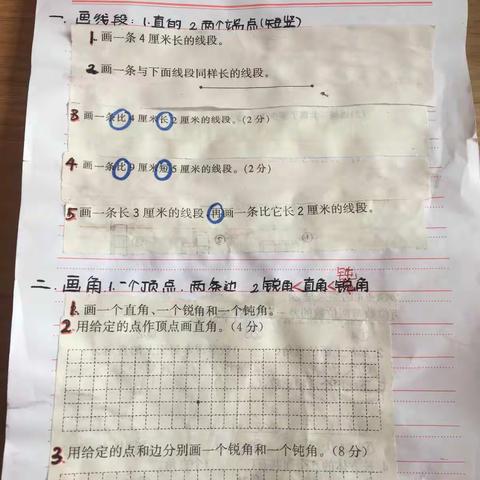 一、画线段：1.直的 2.两个端点(短竖)
1. 画一条4厘米长的线段。
2. 画一条与下面线段同样长的线段。
3. 画一条比4厘米长2厘米的线段。(2分)
4. 画一条比9厘米短5厘米的线段。(2分)
5. 画一条长3厘米的线段,再画一条比它长2厘米的线段。
钝
二、画角 1.一个顶点,两条边 2.锐角<直角<锐角
1. 画一个直角、一个锐角和一个钝角。
2. 用给定的点作顶点画直角。(4分)
3. 用给定的点和边分别画一个锐角和一个钝角。(8分)